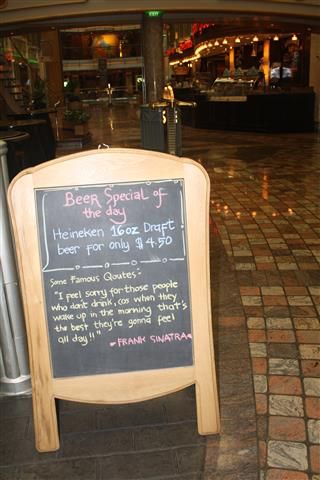 Beer Special of
the day
Heineken 16oz Draft
beer for only $4.50
Some Famous Qoutes:-
"I feel sorry for those people
who dont drink, cos when they
wake up in the morning that's
the best they're gonna feel
all day!!"
- FRANK SINATRA